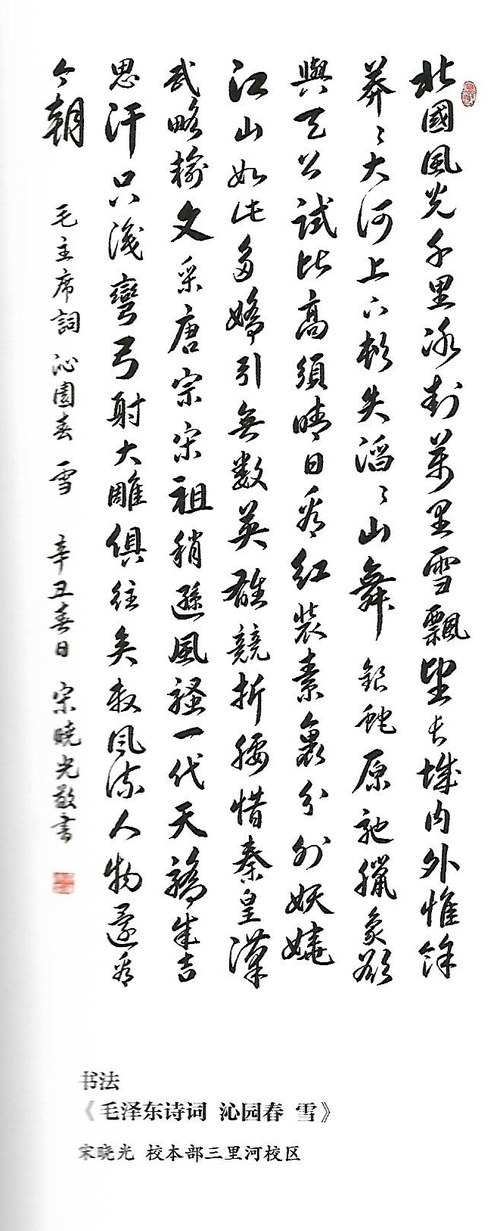 北國風光千里冰封萬里雪飄望長城内外惟餘
莽〻大河上下頓失滔〻山舞銀蛇原馳臘象欲
與天公試比高須晴日看紅裝素裹分外妖嬈
江山如此多嬌引無數英雄競折腰惜秦皇漢
武略輸文采唐宗宋祖稍遜風騷一代天驕成吉
思汗只識彎弓射大雕俱往矣數風流人物還看
今朝 毛主席詞 沁園春 雪 辛丑春日 宋曉光敬書
书法
《毛泽东诗词 沁园春 雪》
宋晓光 校本部三里河校区